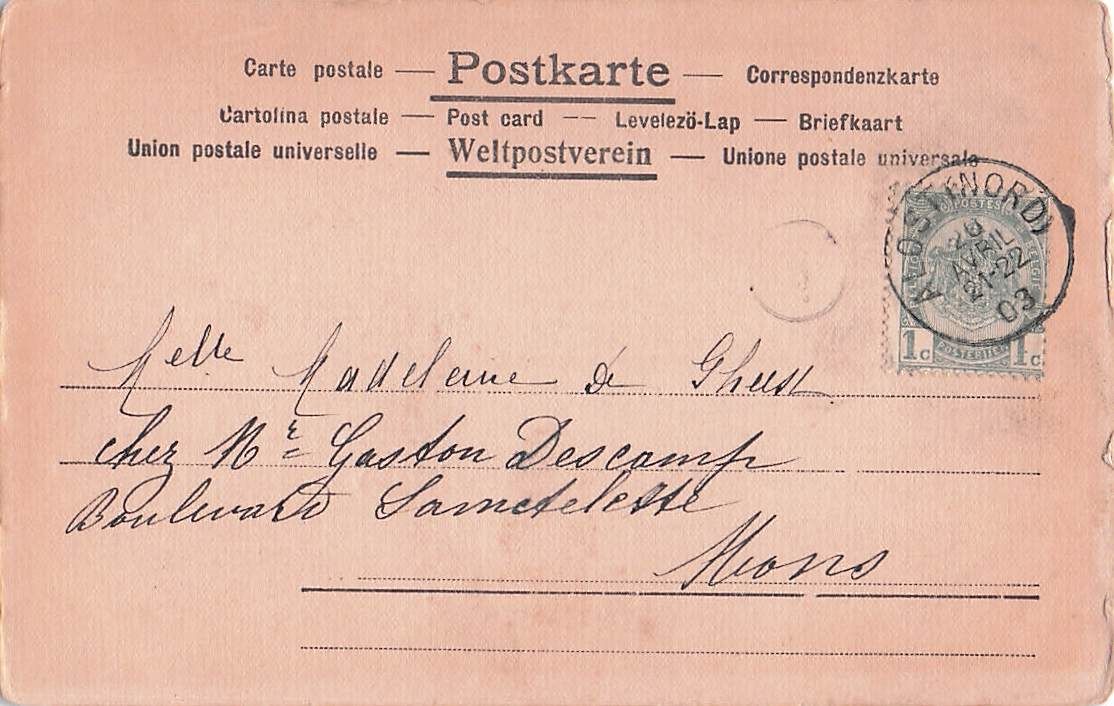 Carte postale — Postkarte — Correspondenzkarte
Cartolina postale — Post card — Levelezö-Lap — Briefkaart
Union postale universelle — Weltpostverein — Unione postale universale
ALOST (NORD)
20
AVRIL
21-22
03
POSTES
1c POSTERIJEN 1c
Melle Madeleine De Gheest
chez Mr Gaston Descamp
Boulevard Sainctelette
Mons